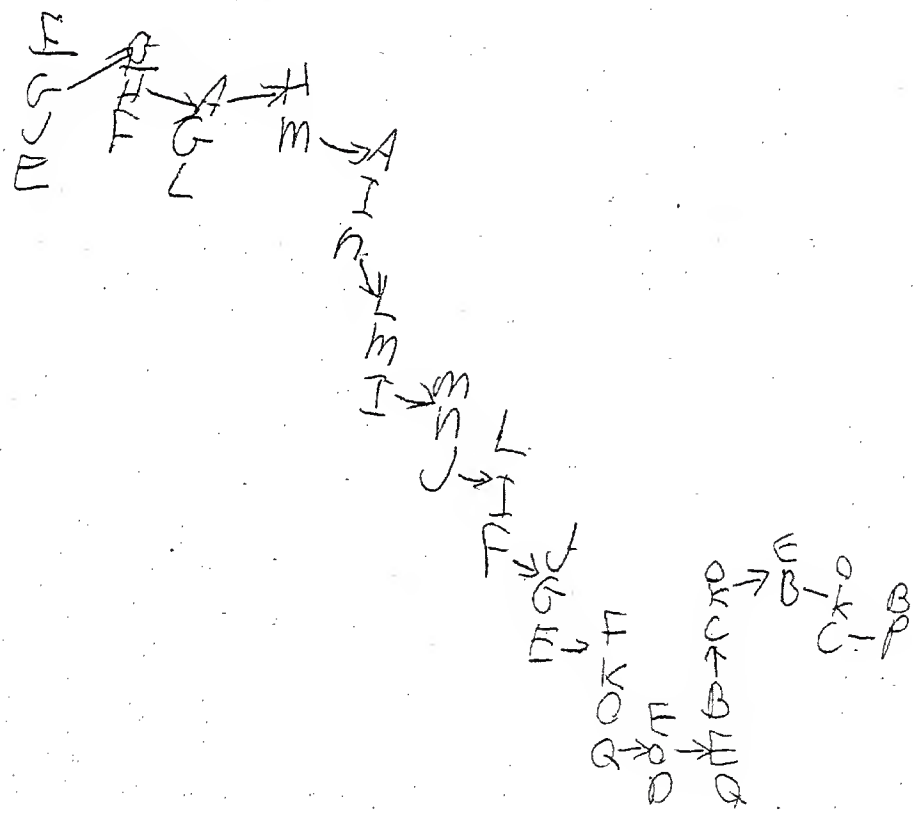 F
G
J
E
H
F
A
G
L
H
m
A
I
n
L
m
I
m
n
J
L
I
F
J
G
E
F
K
O
Q
E
O
D
B
E
Q
O
K
C
E
B
O
K
C
B
P